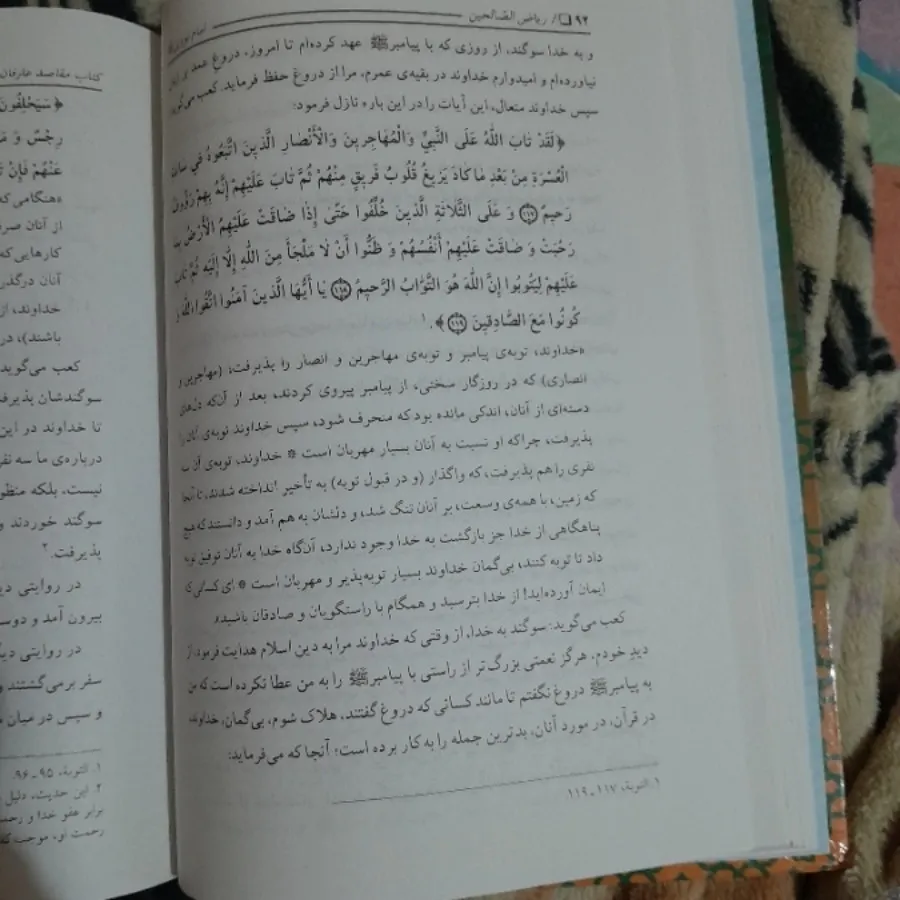 ۹۲ / ریاض الصّالحین
و به خدا سوگند، از روزی که با پیامبرﷺ عهد کرده‌ام تا امروز، دروغ عمد بر زبان
نیاورده‌ام و امیدوارم خداوند در بقیه‌ی عمرم، مرا از دروغ حفظ فرماید. کعب می‌گوید:
سپس خداوند متعال، این آیات را در این باره نازل فرمود:
﴿لَقَدْ تَابَ اللَّهُ عَلَى النَّبِيِّ وَالْمُهَاجِرِينَ وَالْأَنْصَارِ الَّذِينَ اتَّبَعُوهُ فِي سَاعَةِ
الْعُسْرَةِ مِنْ بَعْدِ مَا كَادَ يَزِيغُ قُلُوبُ فَرِيقٍ مِنْهُمْ ثُمَّ تَابَ عَلَيْهِمْ إِنَّهُ بِهِمْ رَؤُوفٌ
رَحِيمٌ ﴿۱۱۷﴾ وَ عَلَى الثَّلَاثَةِ الَّذِينَ خُلِّفُوا حَتَّى إِذَا ضَاقَتْ عَلَيْهِمُ الْأَرْضُ بِمَا
رَحُبَتْ وَ ضَاقَتْ عَلَيْهِمْ أَنْفُسُهُمْ وَ ظَنُّوا أَنْ لَا مَلْجَأَ مِنَ اللَّهِ إِلَّا إِلَيْهِ ثُمَّ تَابَ
عَلَيْهِمْ لِيَتُوبُوا إِنَّ اللَّهَ هُوَ التَّوَّابُ الرَّحِيمُ ﴿۱۱۸﴾ يَا أَيُّهَا الَّذِينَ آمَنُوا اتَّقُوا اللَّهَ وَ
كُونُوا مَعَ الصَّادِقِينَ ﴿۱۱۹﴾﴾.۱
«خداوند، توبه‌ی پیامبر و توبه‌ی مهاجرین و انصار را پذیرفت؛ (مهاجرین و
انصاری) که در روزگار سختی، از پیامبر پیروی کردند، بعد از آن‌که دل‌های
دسته‌ای از آنان، اندکی مانده بود که منحرف شود، سپس خداوند توبه‌ی آنان را
پذیرفت، چراکه او نسبت به آنان بسیار مهربان است * خداوند، توبه‌ی آن سه
نفری را هم پذیرفت، که واگذار (و در قبول توبه) به تأخیر انداخته شدند، تا آنجا
که زمین، با همه‌ی وسعت، بر آنان تنگ شد، و دلشان به هم آمد و دانستند که هیچ
پناهگاهی از خدا جز بازگشت به خدا وجود ندارد، آن‌گاه خدا به آنان توفیق توبه
داد تا توبه کنند، بی‌گمان خداوند بسیار توبه‌پذیر و مهربان است * ای کسانی که
ایمان آورده‌اید! از خدا بترسید و همگام با راستگویان و صادقان باشید».
کعب می‌گوید: سوگند به خدا، از وقتی که خداوند مرا به دین اسلام هدایت فرمود، از
دید خودم، هرگز نعمتی بزرگ‌تر از راستی با پیامبرﷺ را به من عطا نکرده است که من
به پیامبرﷺ دروغ نگفتم تا مانند کسانی که دروغ گفتند، هلاک شوم، بی‌گمان، خداوند،
در قرآن، در مورد آنان، بدترین جمله را به کار برده است؛ آنجا که می‌فرماید:
۱. التوبة، ۱۱۷-۱۱۹
کتاب مقاصد عارفان
﴿سَيَحْلِفُونَ
رِجْسٌ وَ مَ
عَنْهُمْ فَإِنْ
«هنگامی که
از آنان صر
کارهایی که
آنان درگذر
خداوند، از
باشند)، در
کعب می‌گوید
سوگندشان پذیرف
تا خداوند در این
درباره‌ی ما سه نفر
نیست، بلکه منظو
سوگند خوردند و
پذیرفت.۲
در روایتی دی
بیرون آمد و دوس
در روایتی دیگ
سفر برمی‌گشتند و
و سپس در میان م
۱. التوبة، ۹۵-۹۶
۲. این حدیث، دلیل
برابر عفو خدا و رحم
رحمت او، موجب که